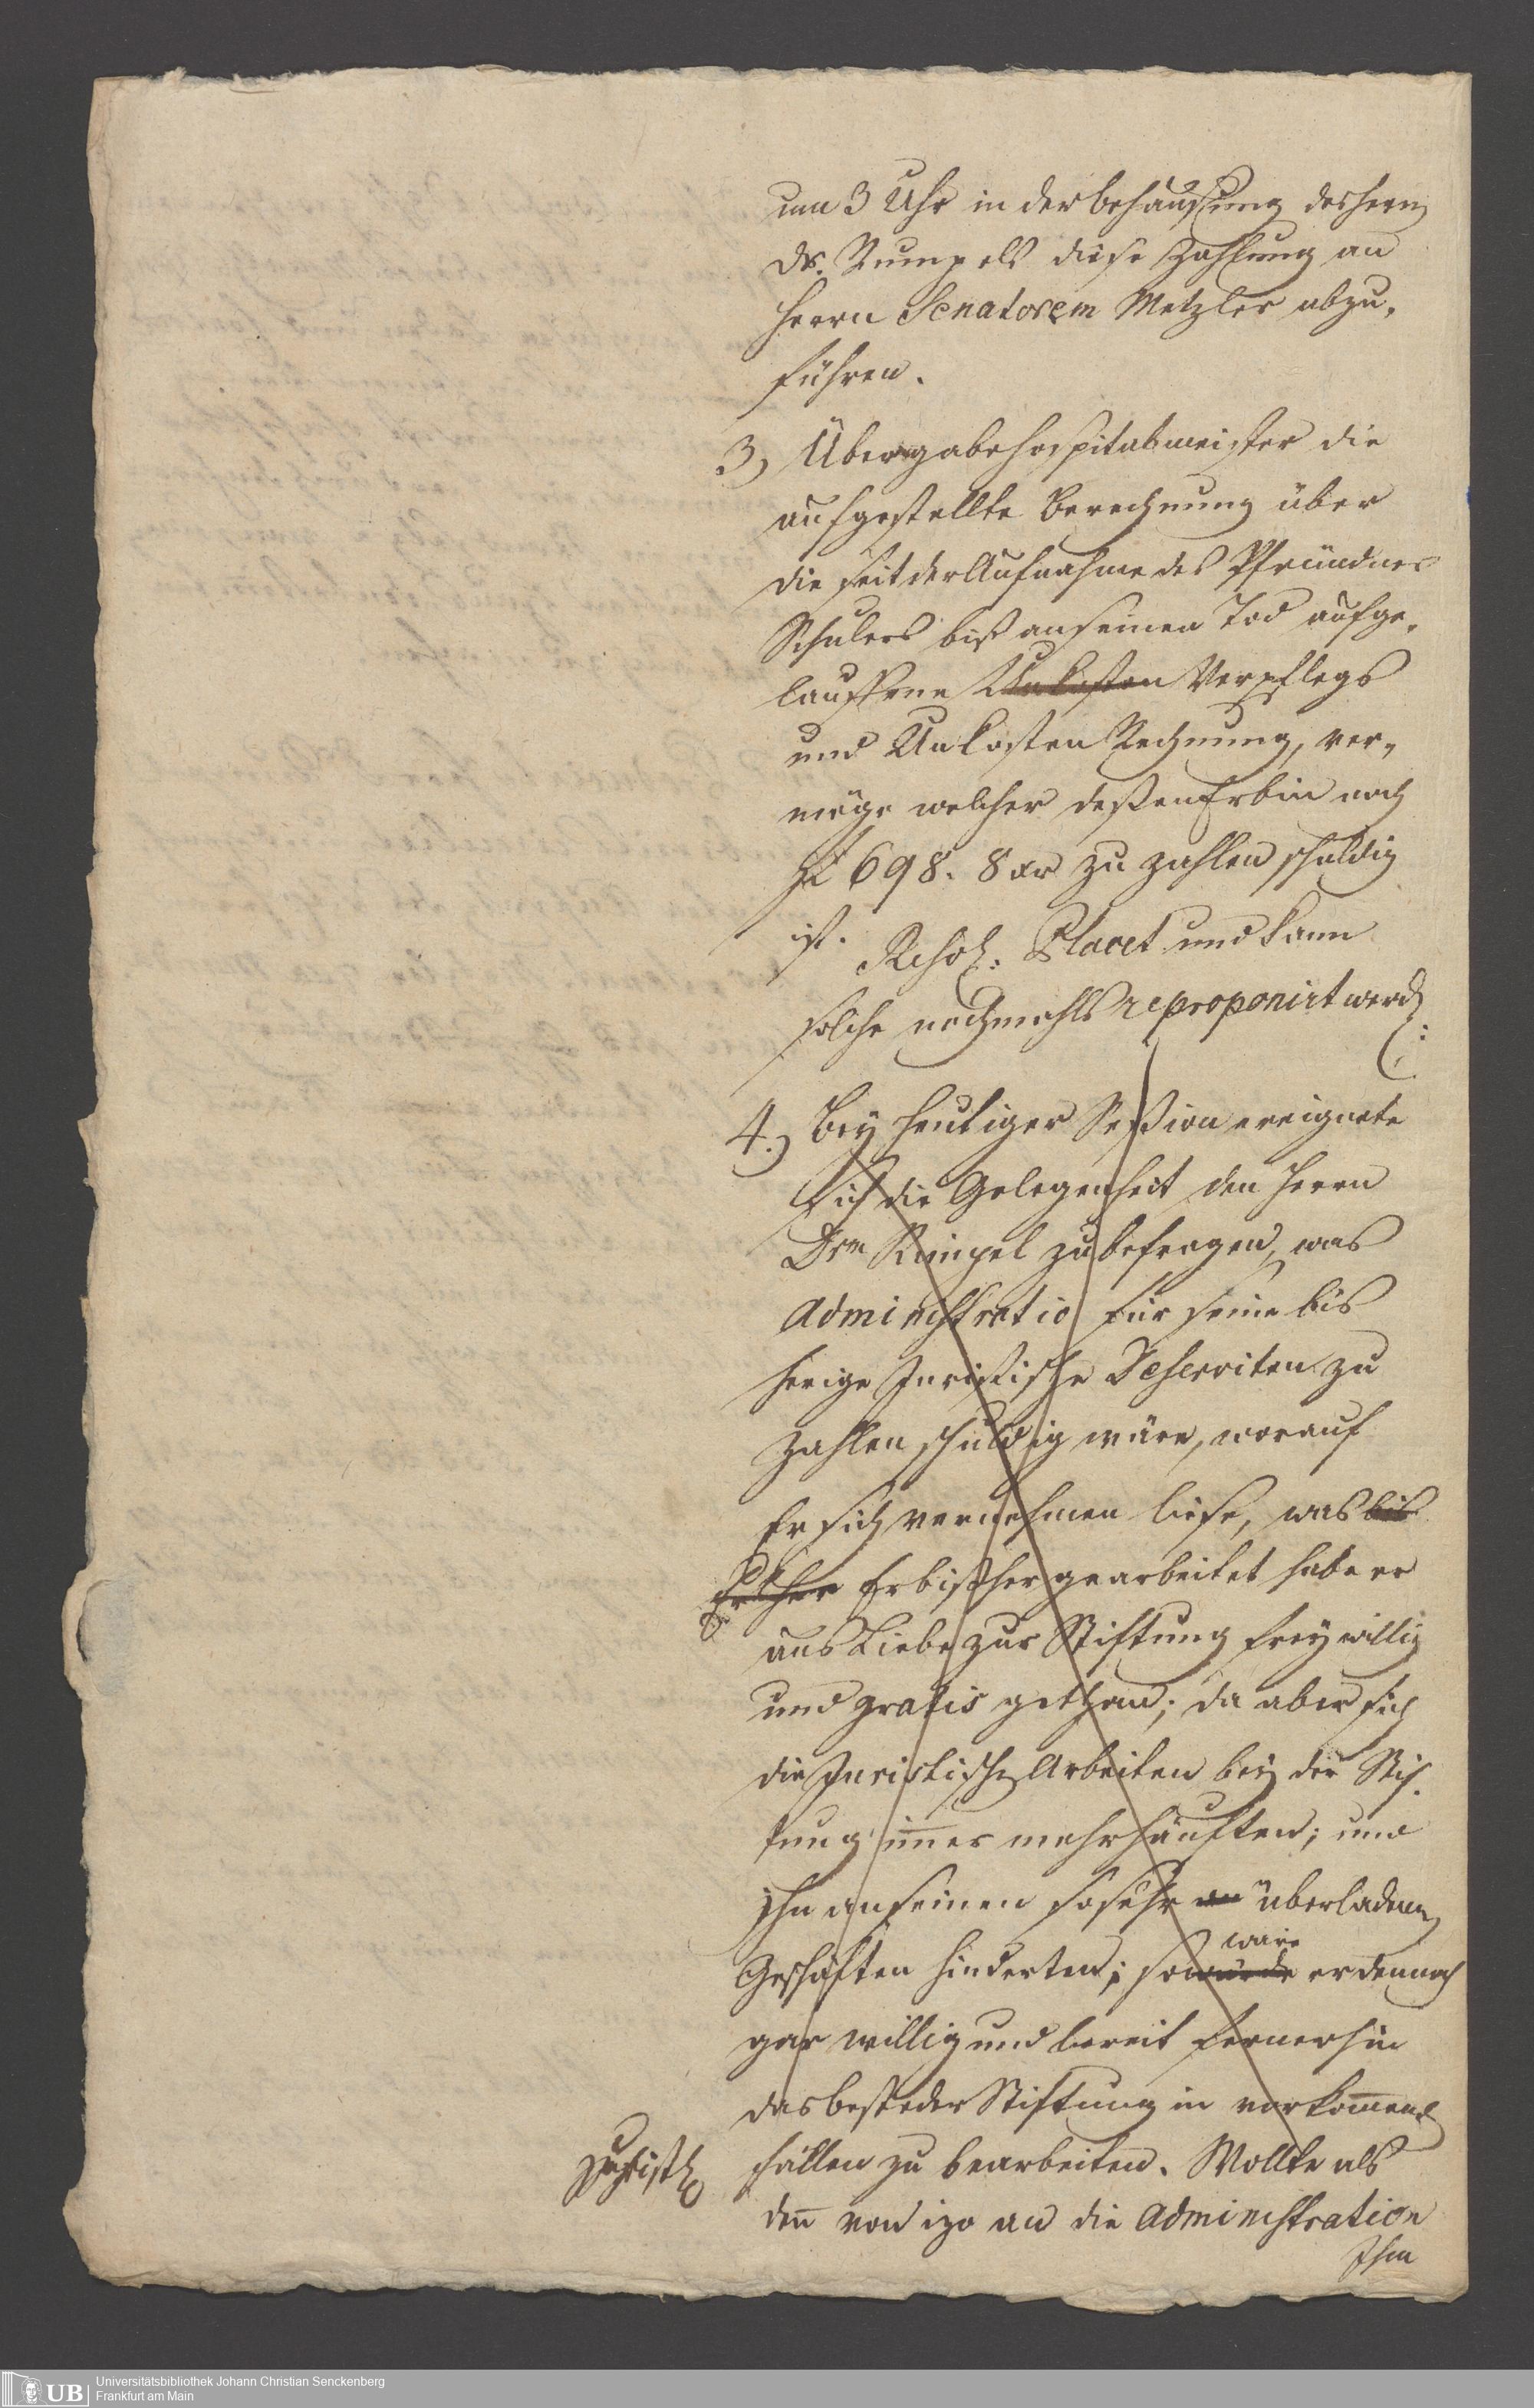 um 3 Uhr in der behaußung des herrn
Dr. Rumpels diese Zahlung an
Herrn Senatorem Metzler abzu,
führen.
3, Übergabe hospitalmeister die
aufgestellte Berechnung über
die seit der Aufnahme des Pfründner
Schulers biß an seinen Tod aufge,
lauffene Unkosten Verpflegs
und Unkosten Rechnung, ver,
möge welcher deßen Erbin noch
f 698. 8 xr zu zahlen schuldig
ist. Resol: Placet und kann
solche nochmahls reproponirt werd
4.) Bey heutiger Seßion ereignete
sich die Gelegenheit den Herrn
Drm Rumpel zu befragen, was
Administratio für seine bis
herige Juristische Deserviten zu
zahlen schuldig wäre, worauf
Er sich vernehmen liese, was bis
Er bißher gearbeitet habe er
aus Liebe zur Stiftung freywillig
und gratis gethan; da aber sich
die Juristische Arbeiten bey der Stif,
tung im̄er mehr häuften; und
ihn an seinen so sehr an überladenen
wäre
Geschäften hinderten; so würde er dennoch
gar willig und bereit fernerhin
das beste der Stiftung in vorkom̄end
Juristisch
fällen zu bearbeiten. Wollte als
den̄ von izo an die Administration
Ihm
Universitätsbibliothek Johann Christian Senckenberg
UB Frankfurt am Main